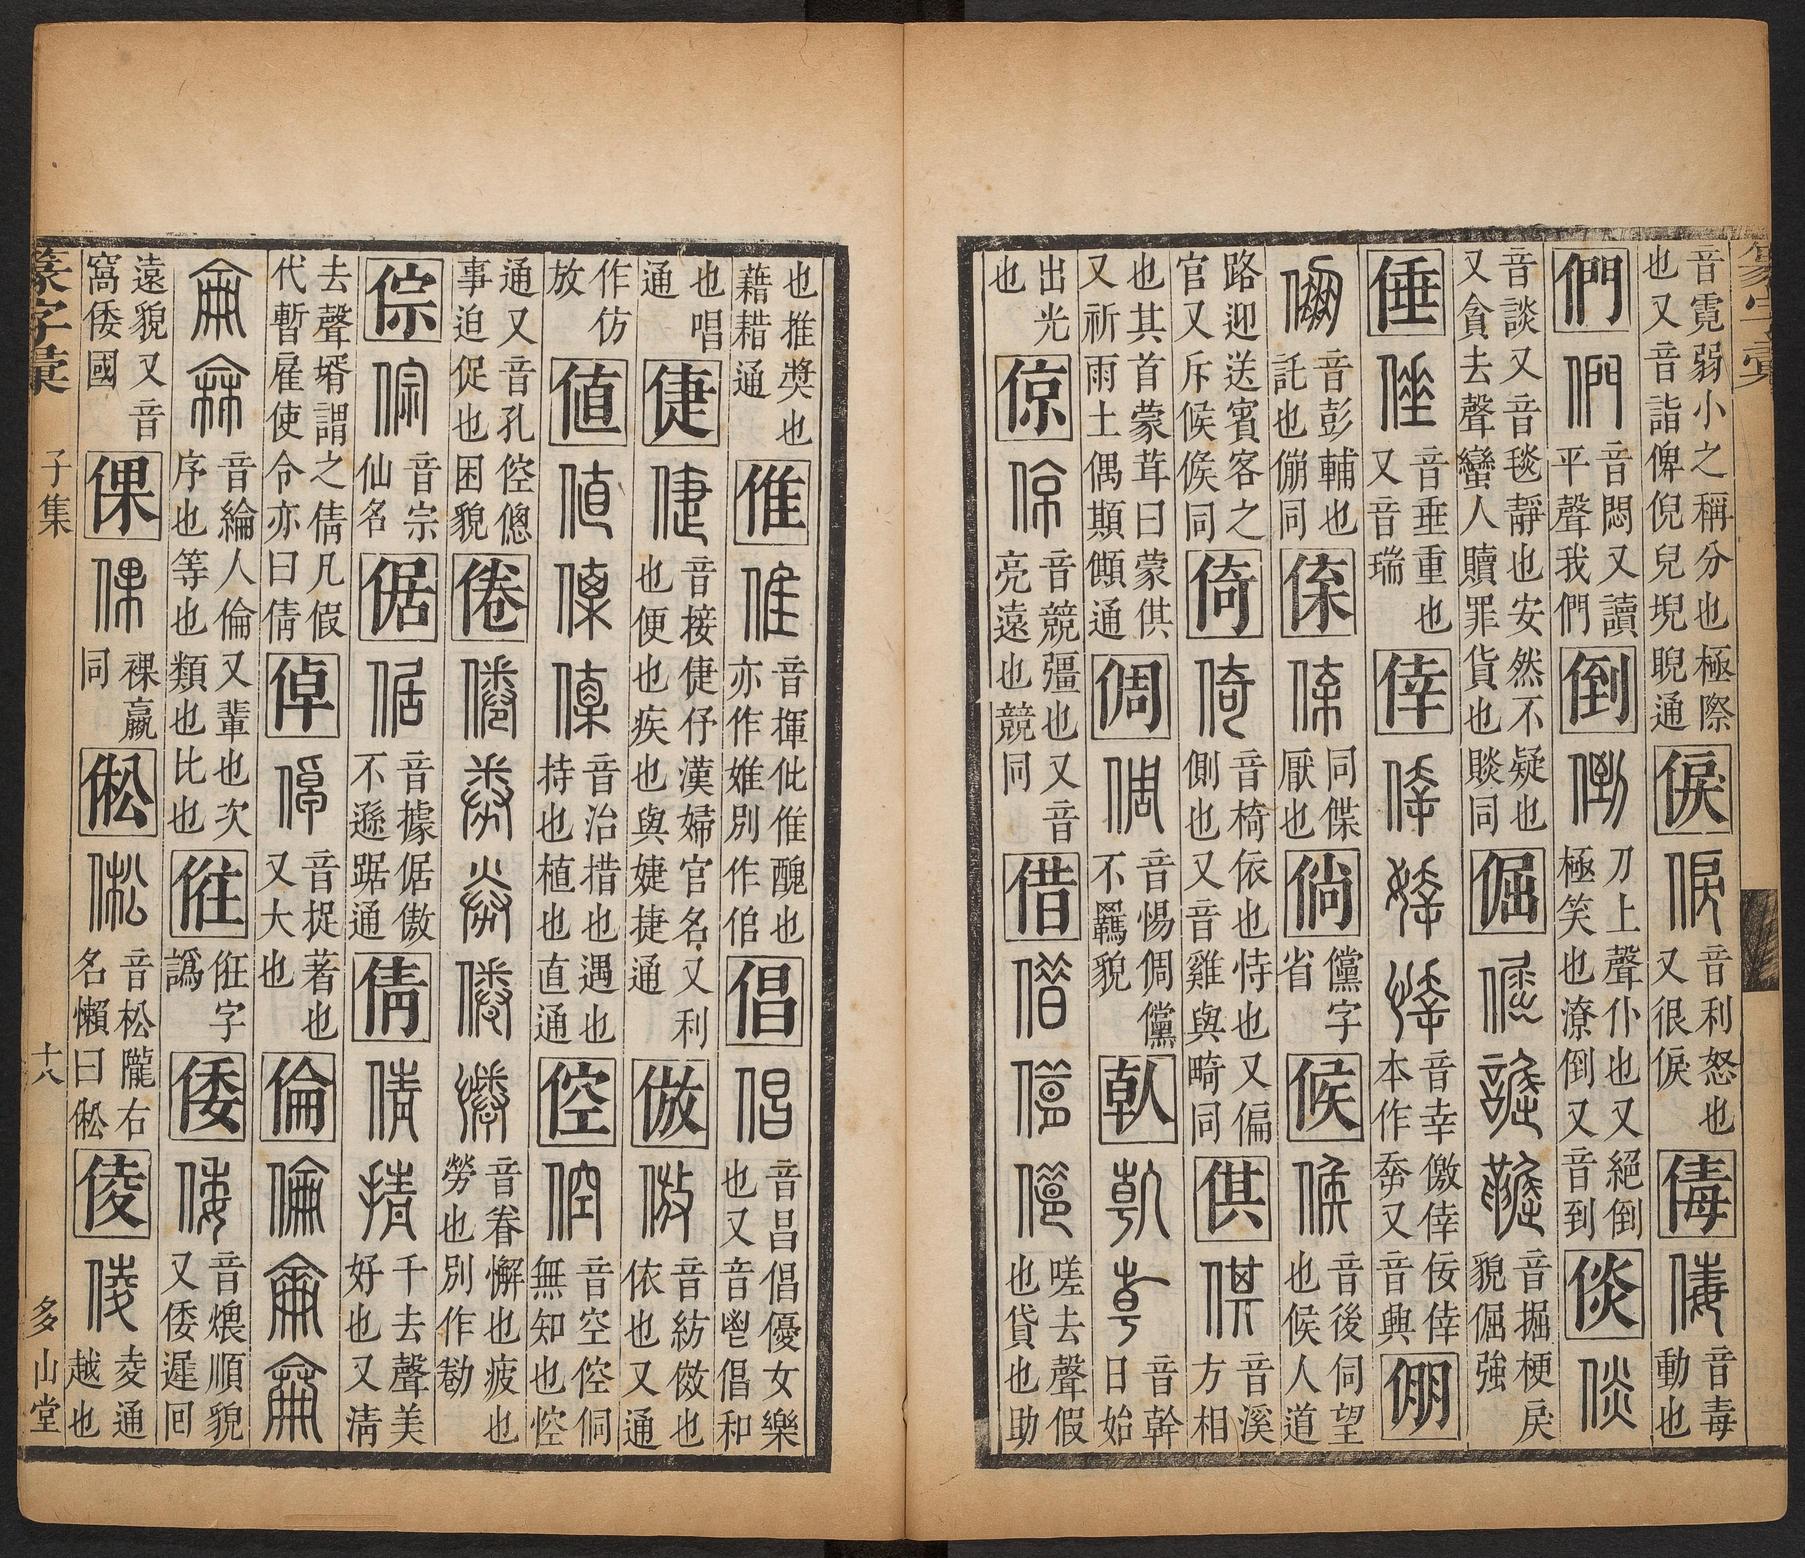 音霓弱小之稱分也極際
也又音詣俾倪兒堄睨通
戾 音利怒也
又很戾
㑄 音毒
動也
們 音悶又讀
平聲我們
倒 刀上聲仆也又絕倒
極笑也潦倒又音到
倓
音談又音毯靜也安然不疑也
又貪去聲蠻人贖罪貨也賧同
倔 音掘梗戾
貌倔強
倕 音垂重也
又音瑞
倖 音幸儌倖佞倖
本作㚔又音興
倗
音彭輔也
託也傰同
倸 同偞
厭也
倘 儻字
省
候 音後伺望
也候人道
路迎送賓客之
官又斥候𠋫同
倚 音椅依也恃也又偏
側也又音雞與畸同
倛 音溪
方相
也其首蒙茸曰蒙倛
又祈雨土偶䫏㒆通
倜 音惕倜儻
不羈貌
倝 音幹
日始
出光
也
倞 音競彊也又音
亮遠也競同
借 嗟去聲假
也貸也助
也推奬也
藉耤通
倠 音揮仳倠醜也
亦作婎別作㑑
倡 音昌倡優女樂
也又音鬯倡和
也唱
通
倢 音接倢伃漢婦官名又利
也便也疾也與婕捷通
倣 音紡倣也
依也又通
作仿
放
値 音治措也遇也
持也植也直通
倥 音空倥侗
無知也悾
通又音孔倥傯
事迫促也困貌
倦 音眷懈也疲也
勞也別作勌
倧 音宗
仙名
倨 音據倨傲
不遜踞通
倩 千去聲美
好也又淸
去聲壻謂之倩凡假
代暫雇使令亦曰倩
倬 音捉著也
又大也
倫
音綸人倫又輩也次
序也等也類也比也
㑌 俇字
譌
倭 音煨順貌
又倭遲回
遠貌又音
窩倭國
倮 裸臝
同
倯 音松隴右
名懶曰倯
倰 夌通
越也
篆字彙 子集 十八 多山堂